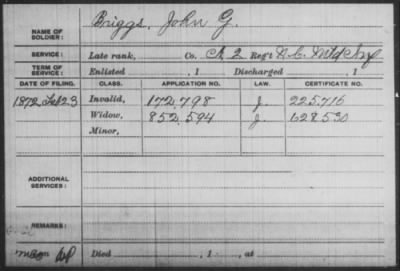 NAME OF SOLDIER: Briggs, John G.
SERVICE: Late rank, Co. A, 2 Reg't N.C. Mtd Inf
TERM OF SERVICE: Enlisted , 1 Discharged , 1
DATE OF FILING. CLASS. APPLICATION NO. LAW. CERTIFICATE NO.
1872 Feb 23 Invalid, 172,798 J. 225,716
Widow, 852,594 J. 628530
Minor,
ADDITIONAL SERVICES:
REMARKS:
Died , 1 , at